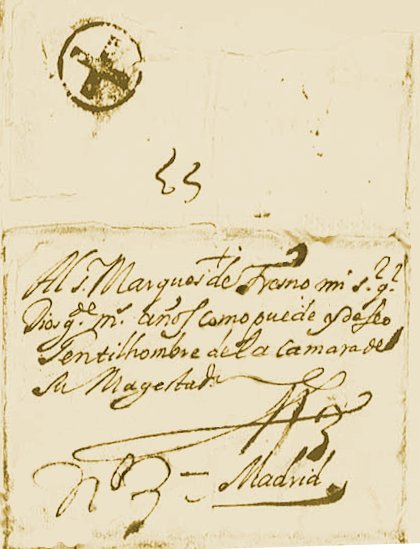 Al S.r Marques de Fresno mi s.r q.e
Dios g.de m.s años como puede y deseo
Gentilhombre de la Camara de
Su Magestad
N.o 3 = Madrid